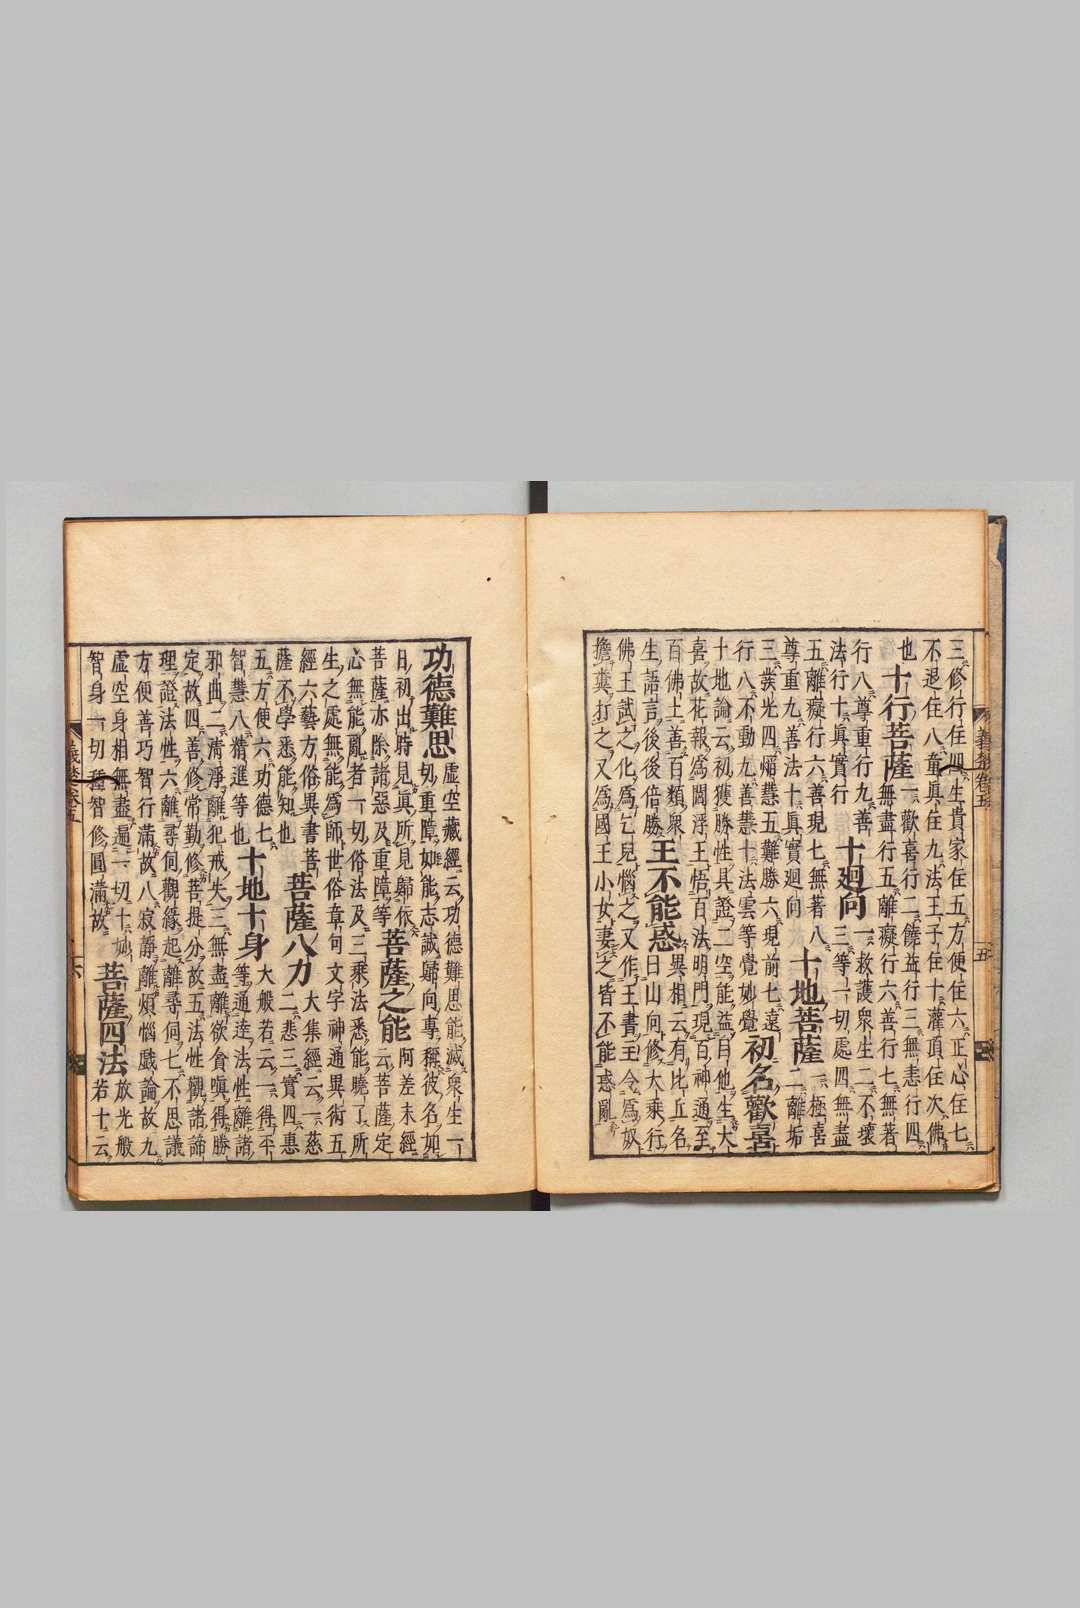 三修行住四生貴家住五方便住六正心住七
不退住八童眞住九法王子住十灌頂住次佛
也
十行菩薩
一歡喜行二饒益行三無恚行四
無盡行五離癡行六善行七無著
行八尊重行九善
法行十眞實行
十廻向
一救護衆生二不壞
三等一切處四無盡
五離癡行六善現七無著八
尊重九善法十眞實廻向
十地菩薩
一極喜
二離垢
三發光四焰慧五難勝六現前七遠
行八不動九善慧十法雲等覺妙覺
初名歡喜
十地論云初獲勝性具證二空能益自他生大
喜故花報爲閻浮王悟百法明門現百神通至
百佛土善百類衆
生語言後後倍勝
王不能惑
異相云有比丘名
日山向修大乘行
佛王試之化爲乞兒惱之又作王書王令爲奴
擔糞打之又爲國王小女妻之皆不能惑亂
功德難思
虛空藏經云功德難思能滅衆生一
切重障如能志誠歸向專稱彼名如
日初出時見眞所見歸依
菩薩亦除諸惡及重障等
菩薩之能
阿差末經
云菩薩定
心無能亂者一切俗法及三乘法悉能曉了所
生之處無不能爲師世俗章句文字神通異術五
經六藝方俗異書菩
薩不學悉能知也
菩薩八力
大集經云一慈
二悲三實四惠
五方便六功德七
智慧八精進等也
十地十身
大般若云一得平
等通達法性離諸
邪曲二淸淨離犯戒失三無盡離欲貪嗔得勝
定故四善修常勤修菩提分故五法性觀諸諦
理證法性六離尋伺觀緣起離尋伺七不思議
方便善巧智行滿故八寂靜離煩惱戲論故九
虛空身相無盡遍一切十妙
智身一切種智修圓滿故
菩薩四法
放光般
若十云
義楚卷五
五
義楚卷五
六